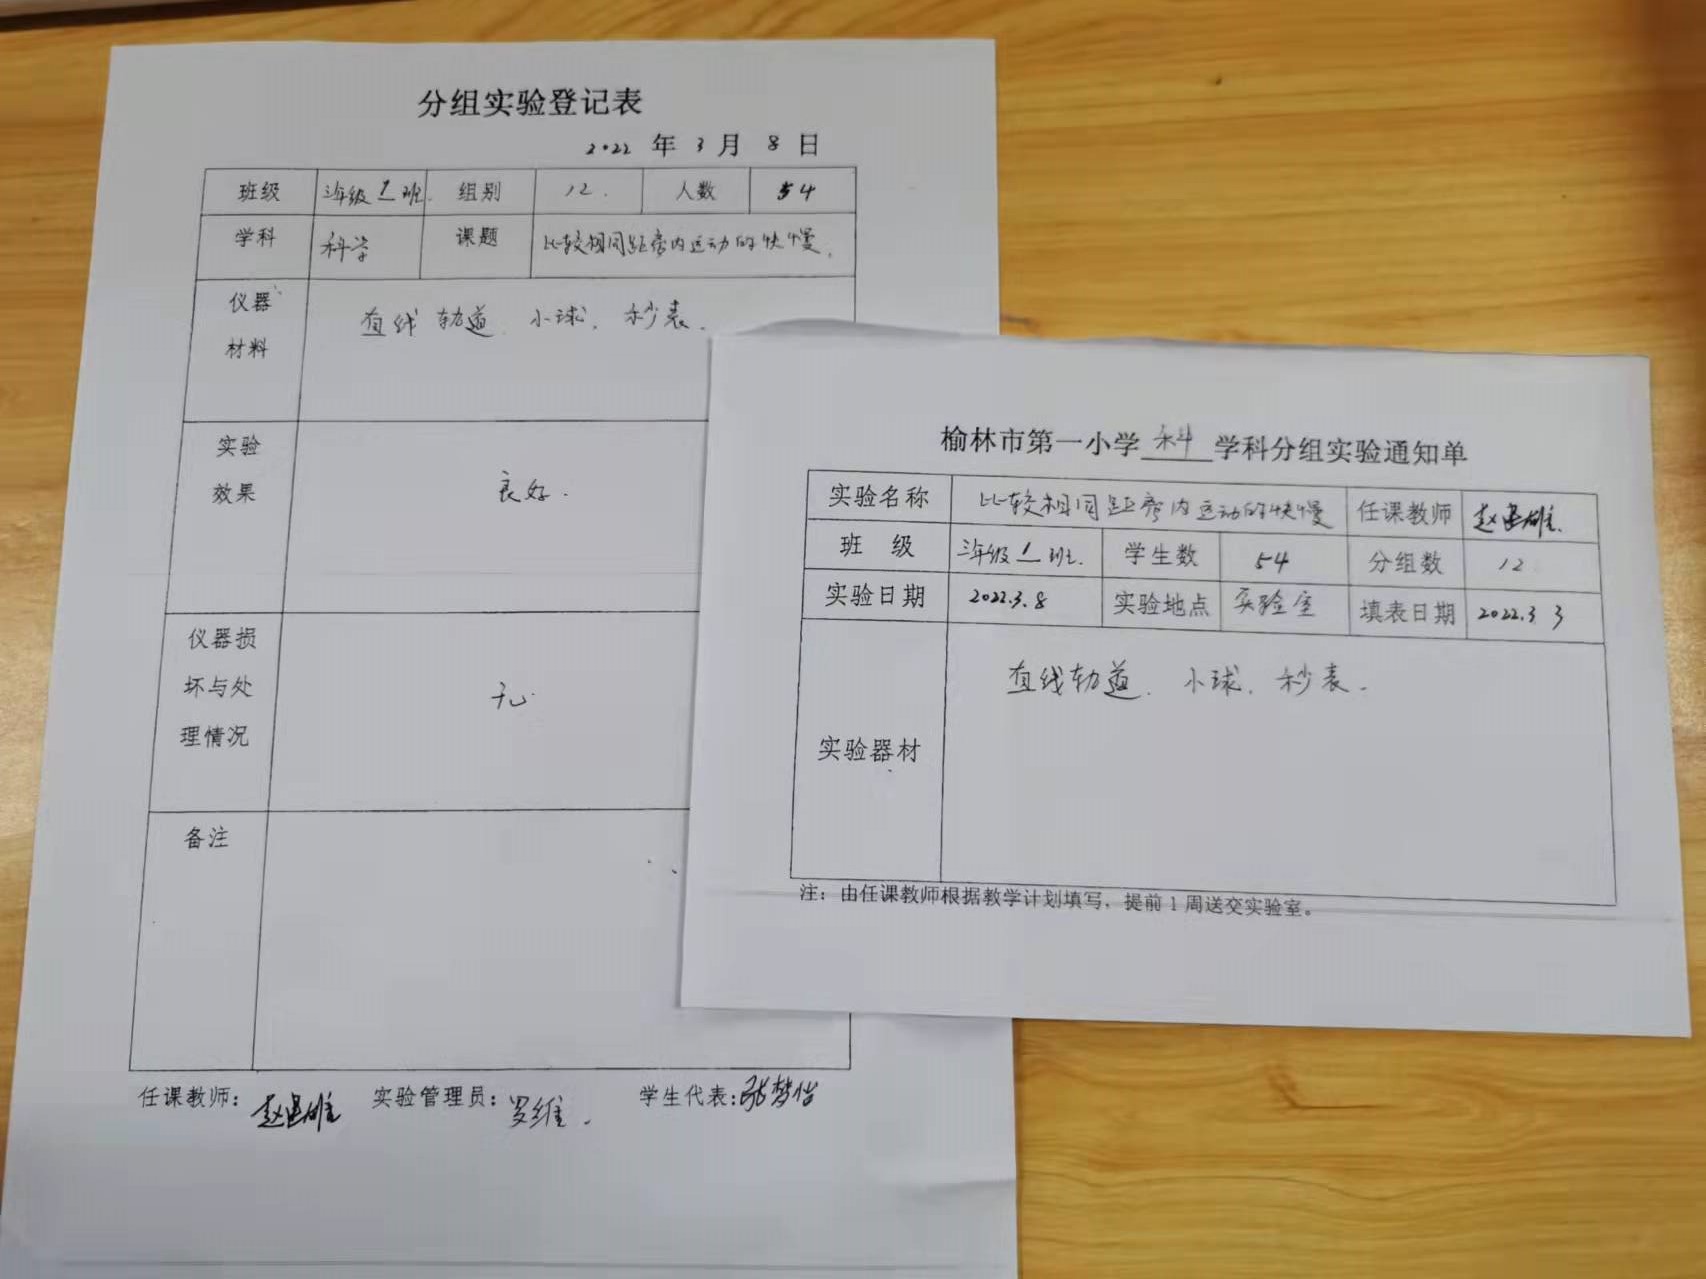 分组实验登记表
2022 年 3 月 8 日
班级 三年级 1 班. 组别 12. 人数 54
学科 科学 课题 比较相同距离内运动的快慢.
仪器 材料 直线轨道、小球、秒表.
实验 效果 良好.
仪器损 坏与处 理情况 无
备注
任课教师: 实验管理员: 罗维. 学生代表: 张梦怡
榆林市第一小学 科 学科分组实验通知单
实验名称 比较相同距离内运动的快慢 任课教师
班 级 三年级 1 班. 学生数 54 分组数 12
实验日期 2022.3.8 实验地点 实验室 填表日期 2022.3 3
实验器材 直线轨道、小球、秒表.
注：由任课教师根据教学计划填写，提前 1 周送交实验室。